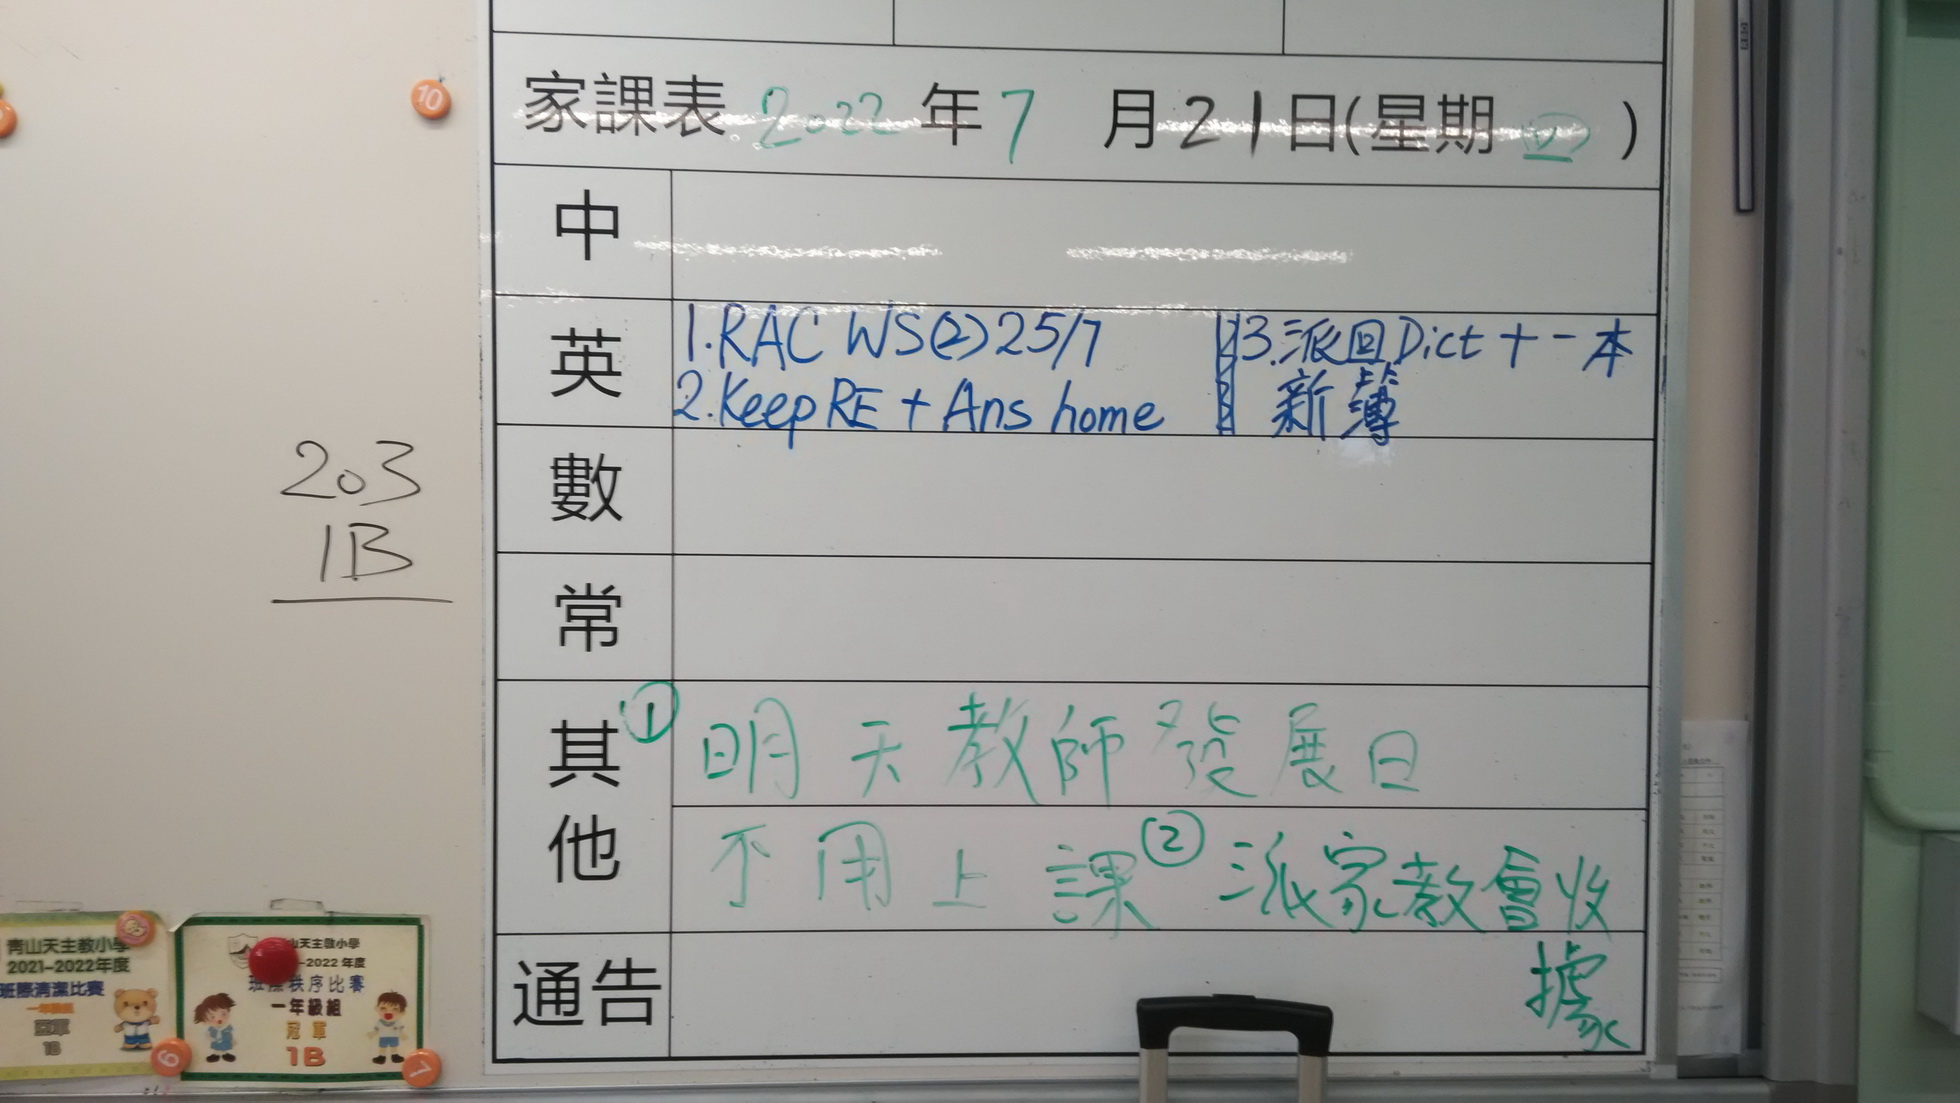 家課表 2022 年 7 月 21 日(星期 四 )
中
英
1.RAC WS(2) 25/7
2.Keep RE + Ans home
3.派回Dict + 一本
新簿
數
常
其他
① 明天教師發展日
不用上課 ② 派家教會收
據
通告
203
1B
10
青山天主教小學
2021-2022年度
班際清潔比賽
一年級組
冠軍
1B
山天主教小學
-2022 年度
班際秩序比賽
一年級組
冠軍
1B
9
7